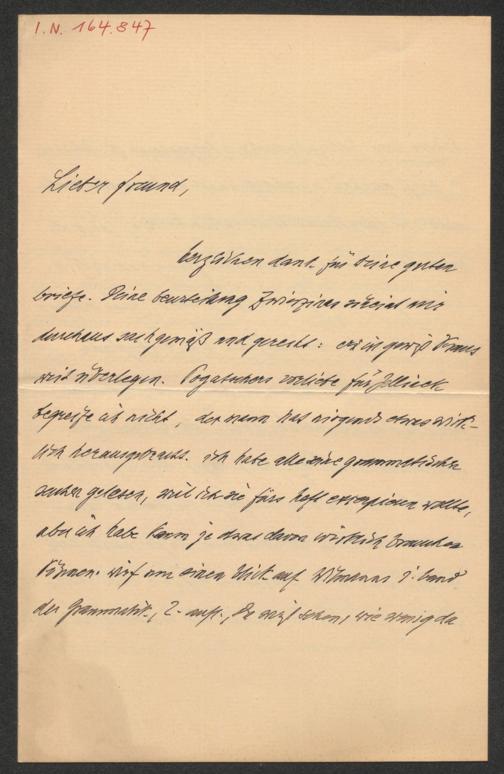 I.N. 164.847
Lieber freund,
herzlichen dank für deine guten
briefe. Deine beurteilung Zwierzinas scheint mir
durchaus sachgemäß und gerecht: er ist gewiß Kraus
weit überlegen. Pogatschers vorliebe für Jellinek
begreife ich nicht, der mann hat nirgends etwas wirk-
lich herausgebracht. ich habe alle seine grammatischen
sachen gelesen, weil ich sie fürs heft excerpieren wollte,
aber ich habe kaum je etwas davon wirklich brauchen
können. wirf nur einen blick auf Wilmanns I. band
der Grammatik, 2. aufl., Du wirst sehen, wie wenig da